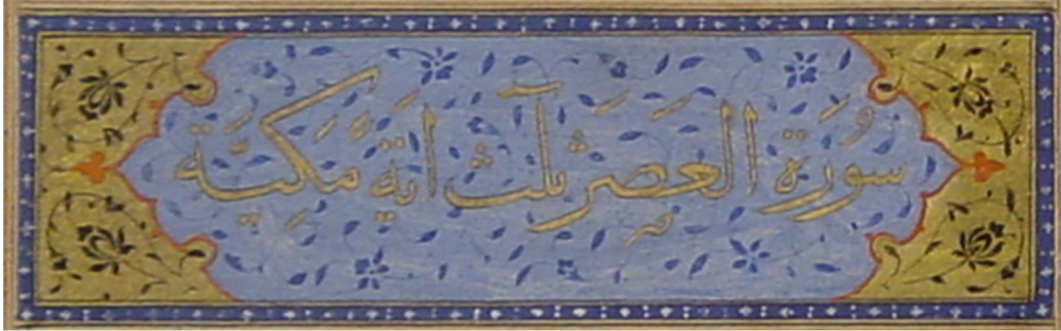 سورة العصر ثلث اية مكية